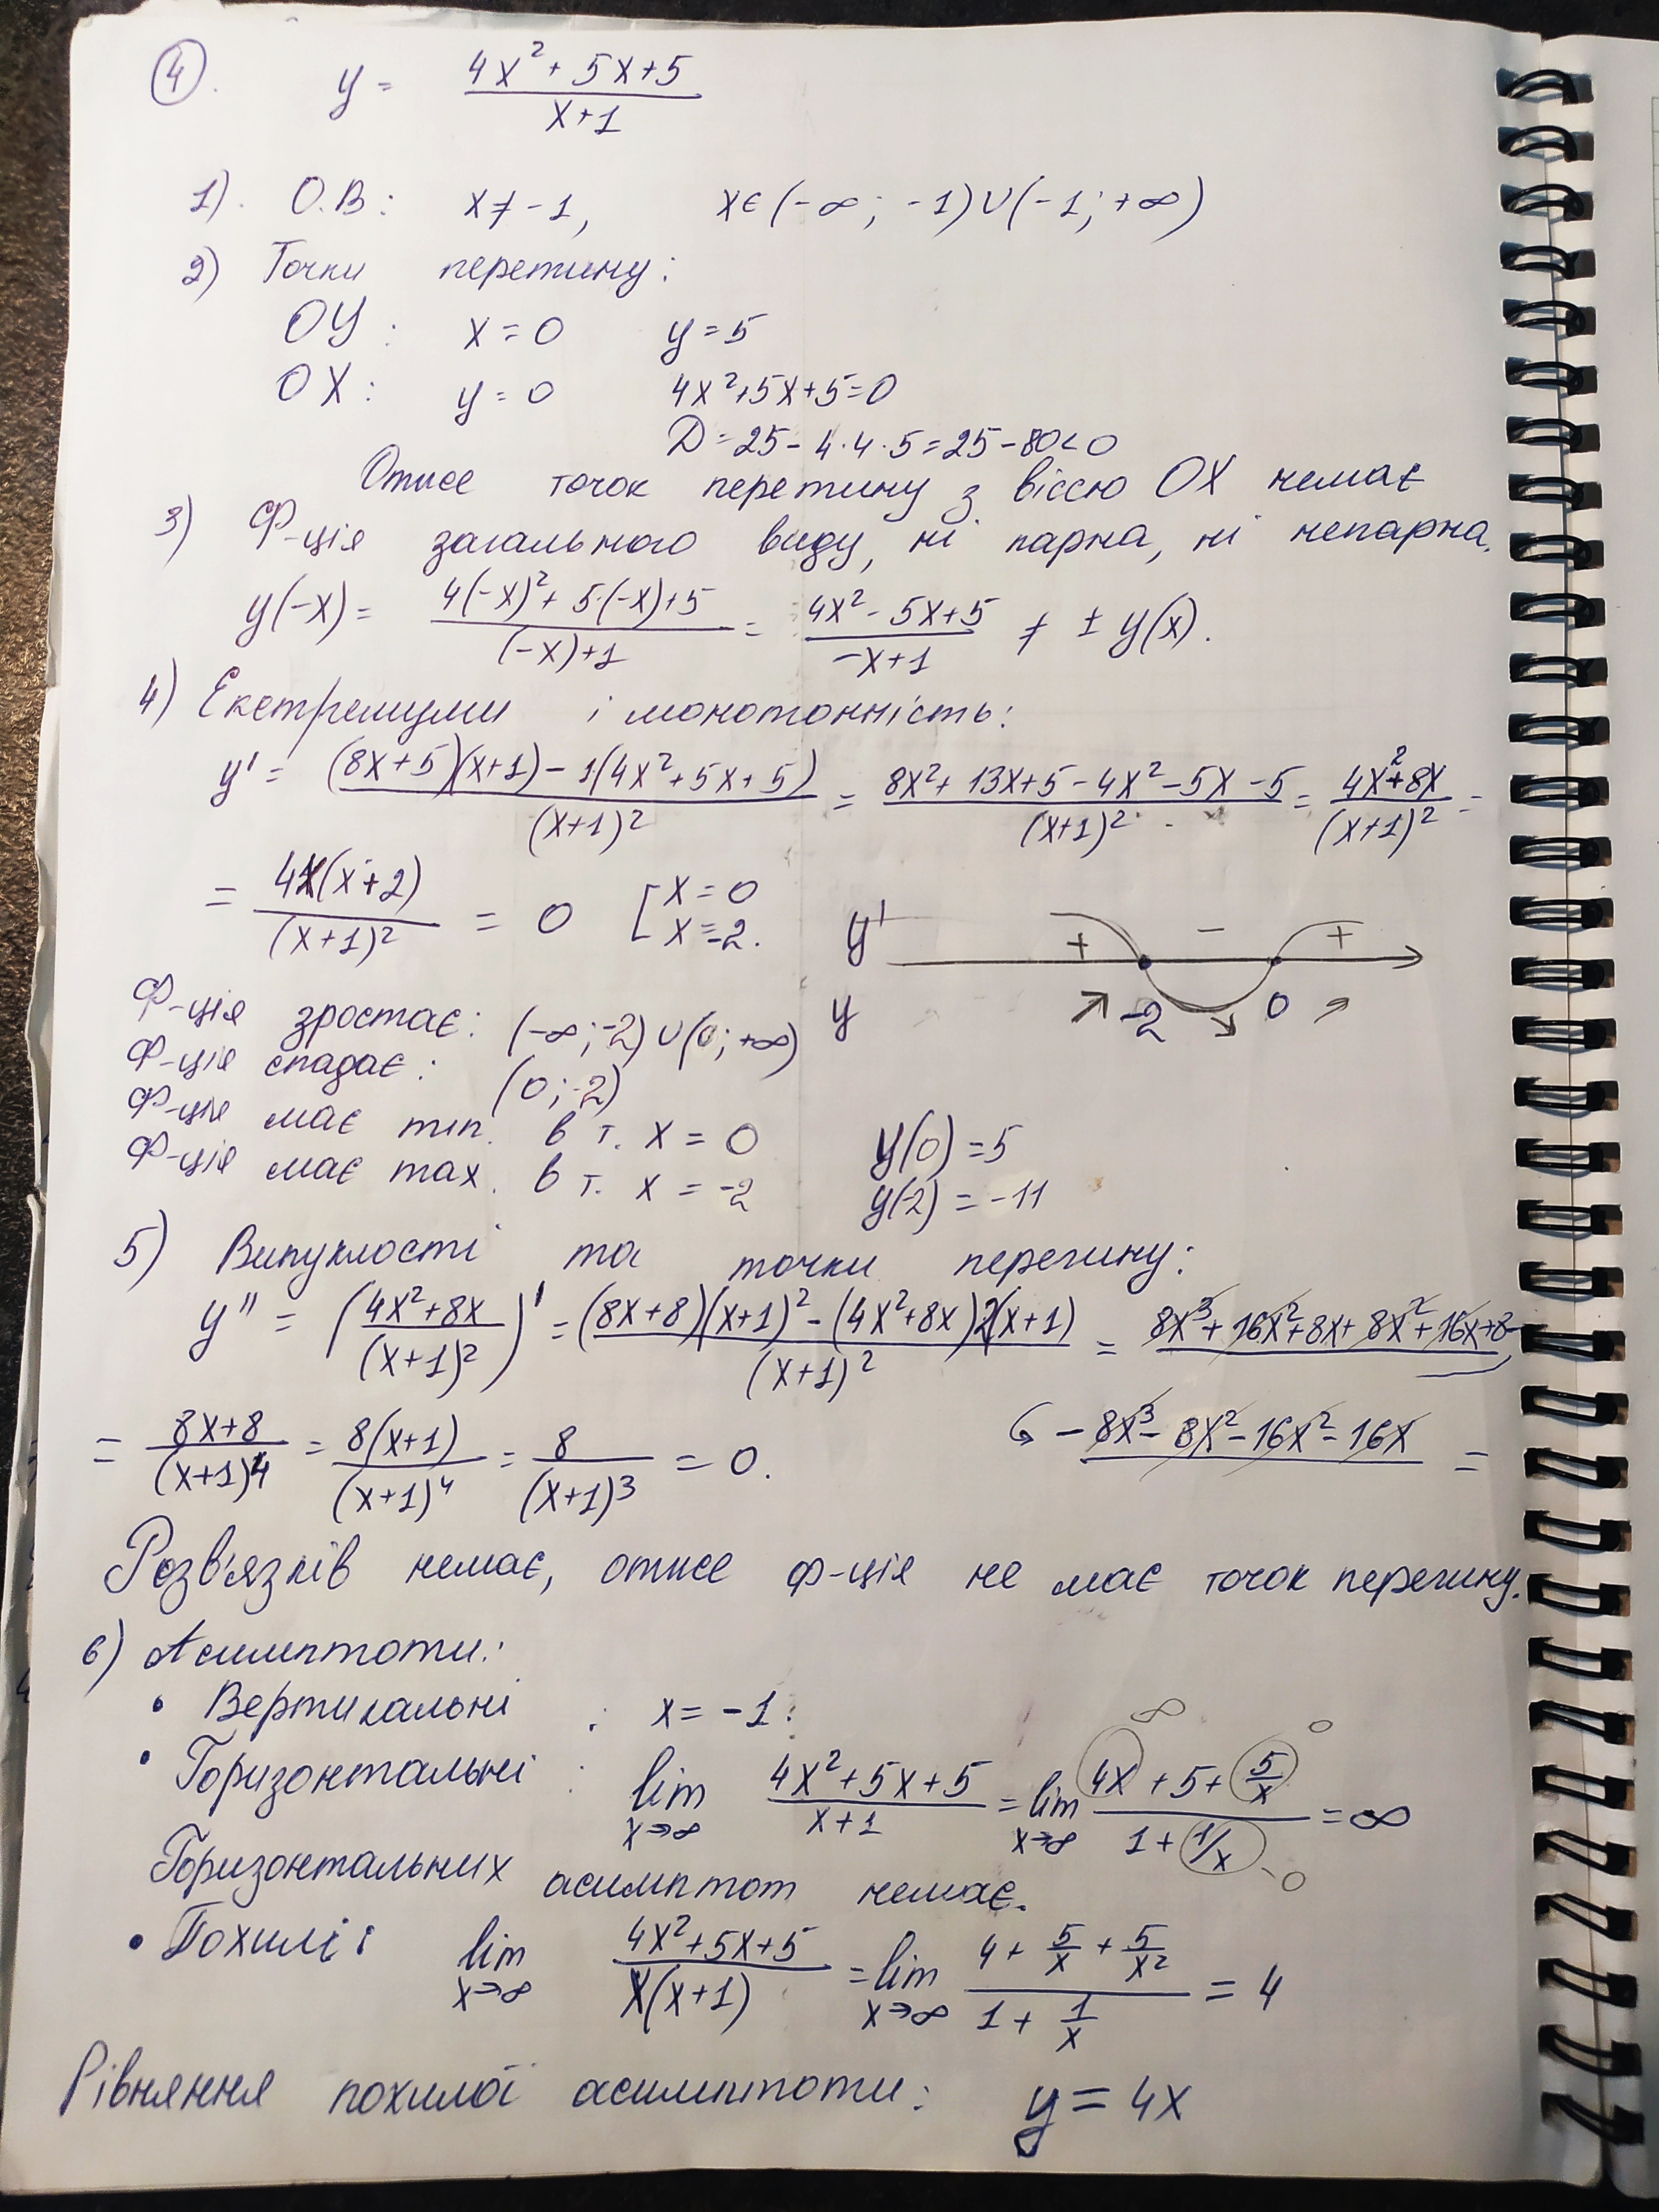 4. y = (4x² + 5x + 5)/(x + 1)
1). О.В: x ≠ -1, x ∈ (-∞; -1) ∪ (-1; +∞)
2) Точки перетину:
OY: x = 0 y = 5
OX: y = 0 4x² + 5x + 5 = 0
D = 25 - 4·4·5 = 25 - 80 < 0
Отже точок перетину з віссю OX немає
3) Ф-ція загального виду, ні парна, ні непарна.
y(-x) = (4(-x)² + 5·(-x) + 5)/((-x) + 1) = (4x² - 5x + 5)/(-x + 1) ≠ ± y(x).
4) Екстремуми і монотонність:
y' = ((8x + 5)(x + 1) - 1(4x² + 5x + 5))/(x + 1)² = (8x² + 13x + 5 - 4x² - 5x - 5)/(x + 1)² = (4x² + 8x)/(x + 1)² =
= 4x(x + 2)/(x + 1)² = 0 [x = 0
x = -2.
y' + - +
y -2 0
Ф-ція зростає: (-∞; -2) ∪ (0; +∞)
Ф-ція спадає: (0; -2)
Ф-ція має min. в т. x = 0 y(0) = 5
Ф-ція має max. в т. x = -2 y(-2) = -11
5) Випуклості та точки перегину:
y'' = ((4x² + 8x)/(x + 1)²)' = ((8x + 8)(x + 1)² - (4x² + 8x)2(x + 1))/(x + 1)² = 8x³ + 16x² + 8x + 8x² + 16x + 8 -
- 8x³ - 8x² - 16x² - 16x =
= (8x + 8)/(x + 1)⁴ = 8(x + 1)/(x + 1)⁴ = 8/(x + 1)³ = 0.
Розв'язків немає, отже ф-ція не має точок перегину.
6) Асимптоти:
• Вертикальні : x = -1:
• Горизонтальні : lim x→∞ (4x² + 5x + 5)/(x + 1) = lim x→∞ (4x + 5 + 5/x)/(1 + 1/x) = ∞
∞ 0 0
Горизонтальних асимптот немає.
• Похилі: lim x→∞ (4x² + 5x + 5)/(x(x + 1)) = lim x→∞ (4 + 5/x + 5/x²)/(1 + 1/x) = 4
Рівняння похилої асимптоти: y = 4x